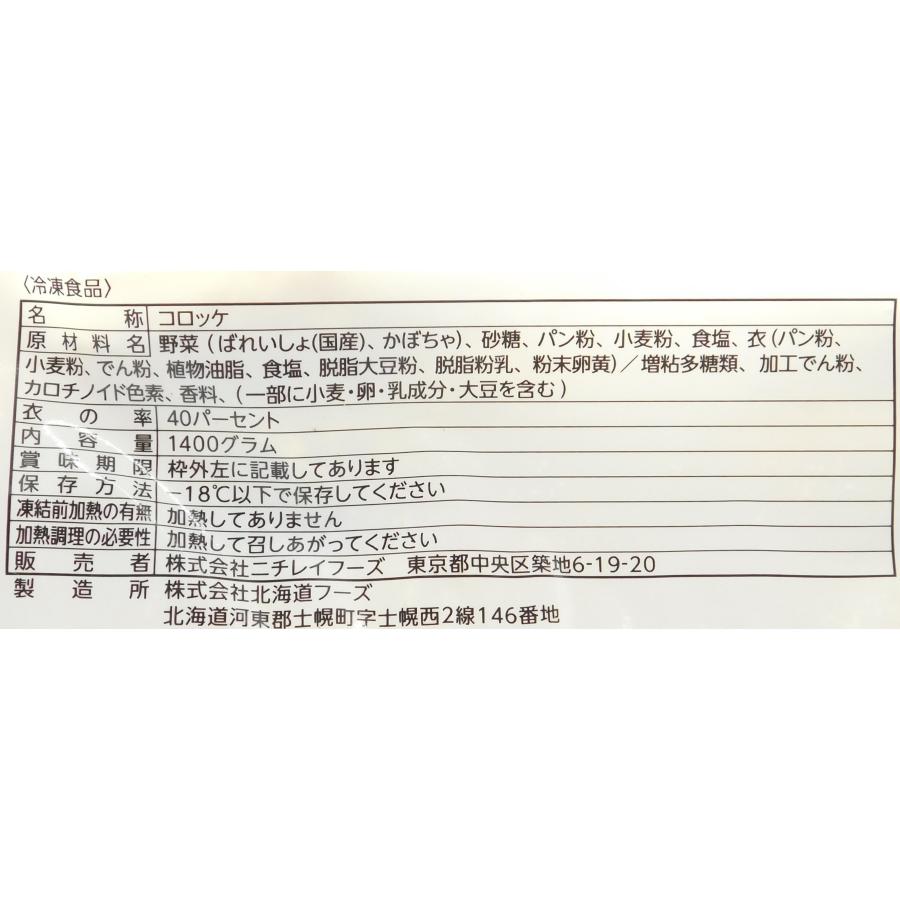 〈冷凍食品〉
名称 コロッケ
原材料名 野菜(ばれいしょ(国産)、かぼちゃ)、砂糖、パン粉、小麦粉、食塩、衣(パン粉、
小麦粉、でん粉、植物油脂、食塩、脱脂大豆粉、脱脂粉乳、粉末卵黄)／増粘多糖類、加工でん粉、
カロチノイド色素、香料、(一部に小麦・卵・乳成分・大豆を含む)
衣の率 40パーセント
内容量 1400グラム
賞味期限 枠外左に記載してあります
保存方法 −18℃以下で保存してください
凍結前加熱の有無 加熱してありません
加熱調理の必要性 加熱して召しあがってください
販売者 株式会社ニチレイフーズ 東京都中央区築地6-19-20
製造所 株式会社北海道フーズ
北海道河東郡士幌町字士幌西2線146番地